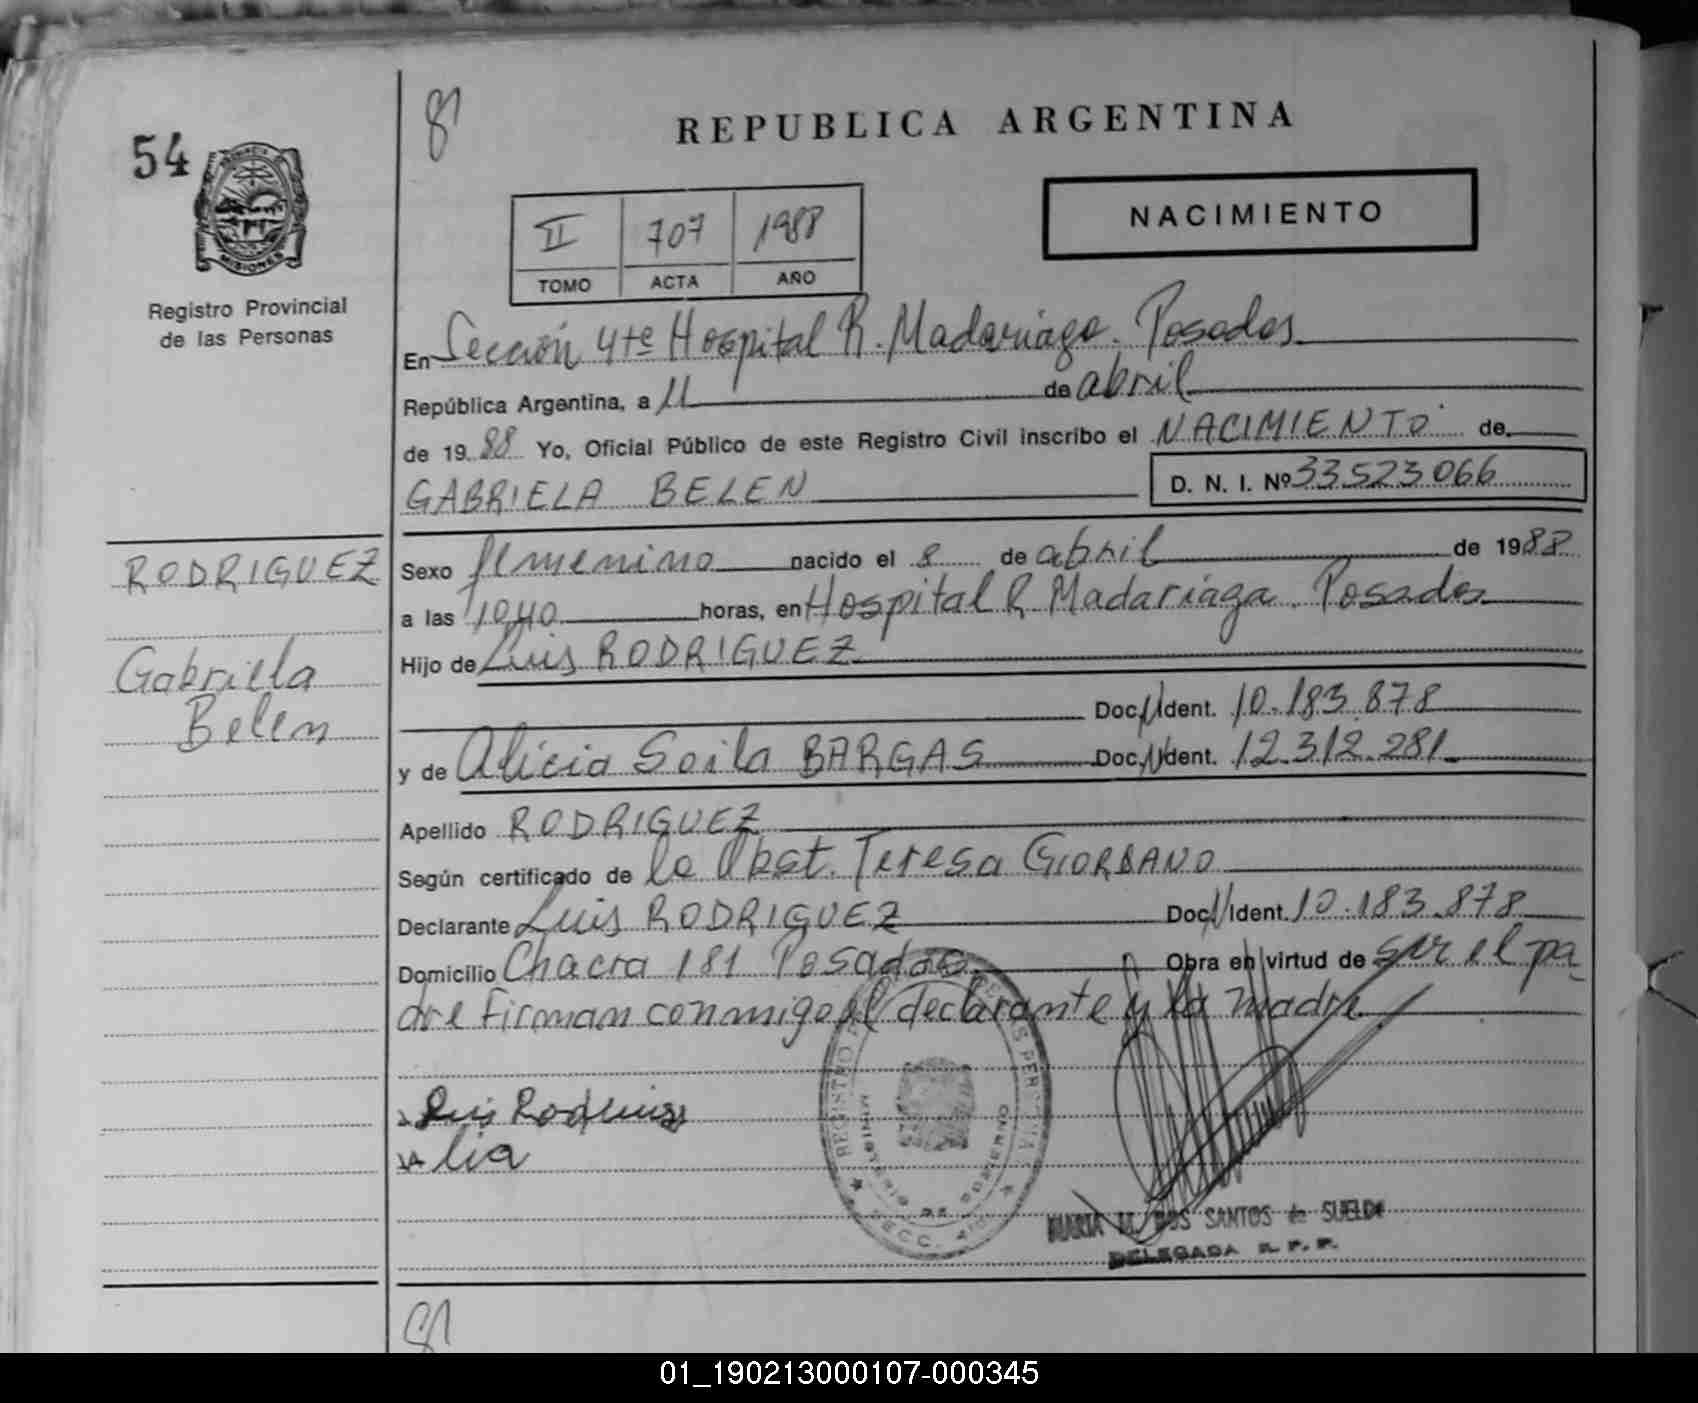 81
REPUBLICA ARGENTINA
54
PROVINCIA DE
MISIONES
II 707 1988
TOMO ACTA AÑO
NACIMIENTO
Registro Provincial
de las Personas
En Sección 4te Hospital R. Madariaga. Posadas
República Argentina, a 11 de abril
de 1988 Yo, Oficial Público de este Registro Civil inscribo el NACIMIENTO de
GABRIELA BELEN D. N. I. Nº 33.523.066
RODRIGUEZ
Gabriela
Belen
Sexo femenino nacido el 8 de abril de 1988
a las 10,40 horas, en Hospital R. Madariaga. Posadas
Hijo de Luis RODRIGUEZ
Doc. Ident. 10.183.878
y de Alicia Soila BARGAS Doc. Ident. 12.312.281
Apellido RODRIGUEZ
Según certificado de la Obst. Teresa GIORDANO
Declarante Luis RODRIGUEZ Doc. Ident. 10.183.878
Domicilio Chacra 181 Posadas Obra en virtud de ser el pa
dre Firman conmigo el declarante y la madre.
Luis Rodriguez
Alia
REGISTRO PERSONAS
MINISTERIO DE GOBIERNO
SECC. 4ta
MARIA M. DOS SANTOS de SUELDO
DELEGADA R. P. P.
81
01_190213000107-000345